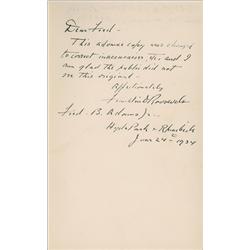 Dear Fred -
This adomas copy was changed
to correct inaccuracies etc and I
am glad the public did not
see this original -
Affectionately
Franklin D Roosevelt
Fred. B. Adams Jr -
Hyde Park &
June 24th 1934